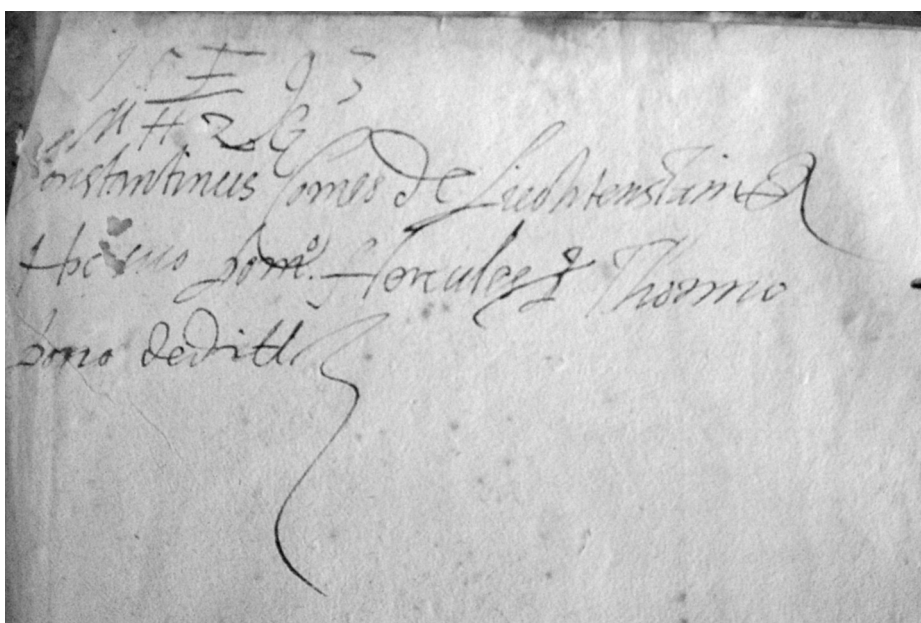 15 E 93
M H Z G
Constantinus Comes de Liechtenstain
Hoc suo Domo. Hercules Thormo
Dono deditt